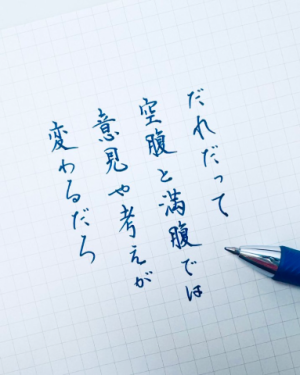 だれだって
空腹と満腹では
意見や考えが
変わるだろ